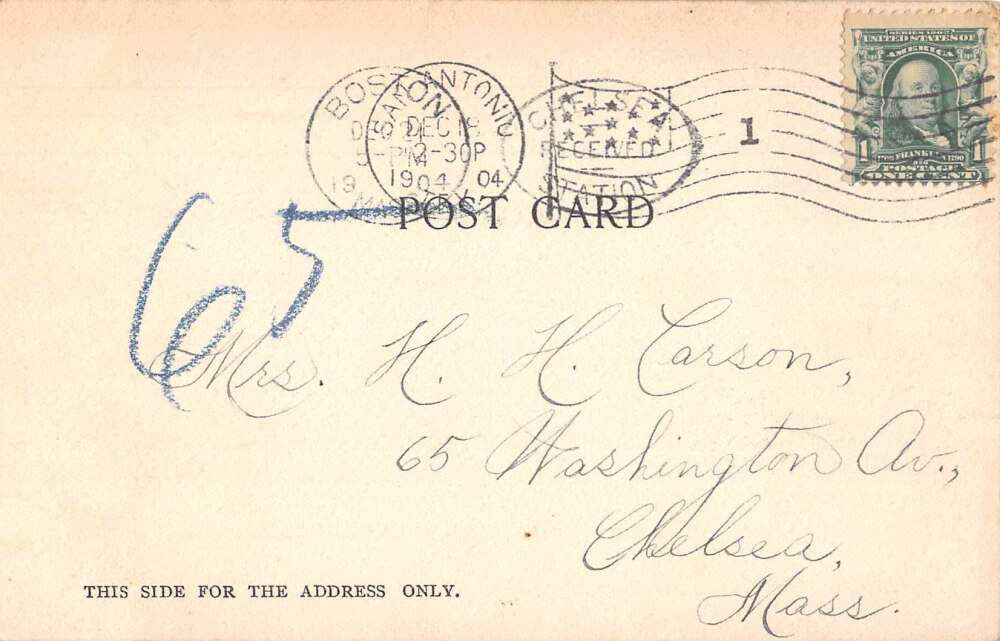 SERIES 1902
UNITED STATES OF
AMERICA
1 1
FRANKLIN
POSTAGE
ONE CENT
BOSTON
DEC 21
PM
19 04
MASS
SAN ANTONIO
DEC 18
2-30P
1904
CHELSEA
RECEIVED
STATION
1
POST CARD
65
Mrs. H. H. Carson,
65 Washington Av.,
Chelsea,
Mass.
THIS SIDE FOR THE ADDRESS ONLY.